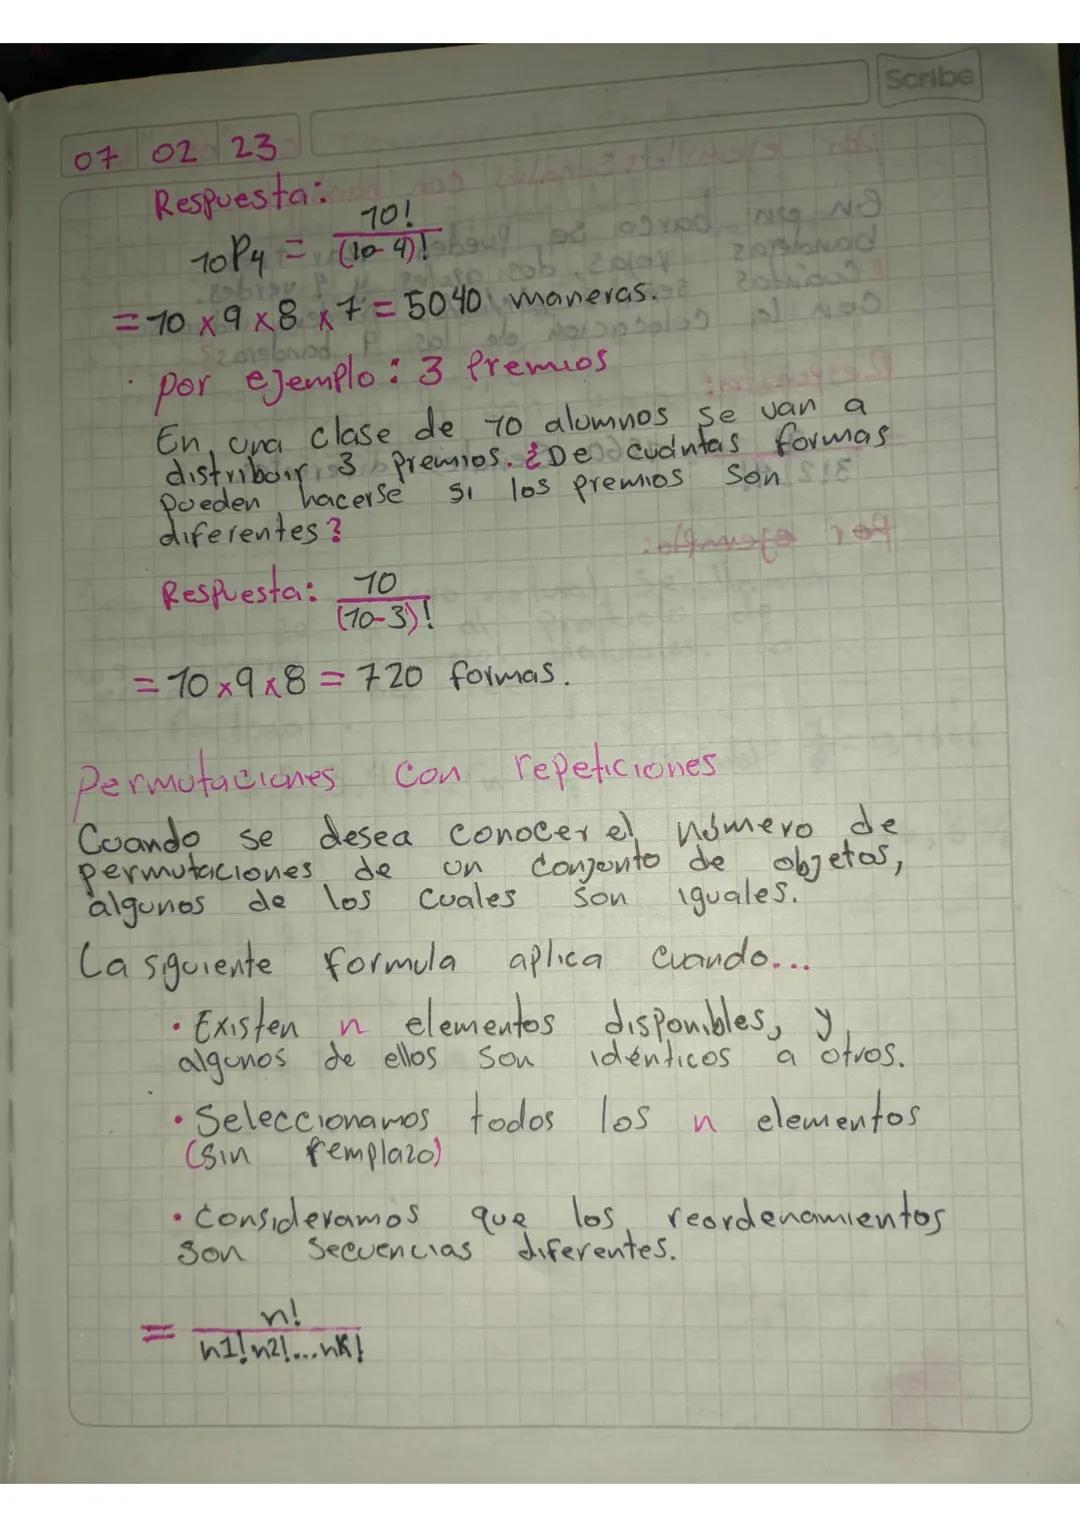 Scribe
07 02 23
Respuesta:
10P4 = 10!/(10-4)!
= 10 x 9 x 8 x 7 = 5040 maneras.
· por ejemplo: 3 Premios
En una clase de 10 alumnos se van a
distribuir 3 premios. ¿De cuántas formas
pueden hacerse si los premios son
diferentes?
Respuesta: 10/(10-3)!
= 10 x 9 x 8 = 720 formas.
Permutaciones con repeticiones
Cuando se desea conocer el número de
permutaciones de un conjunto de objetos,
algunos de los cuales son iguales.
La siguiente formula aplica cuando...
· Existen n elementos disponibles, y
algunos de ellos son idénticos a otros.
· Seleccionamos todos los n elementos
(sin remplazo)
· Consideramos que los reordenamientos
son secuencias diferentes.
= n!/n1!n2!...nk!